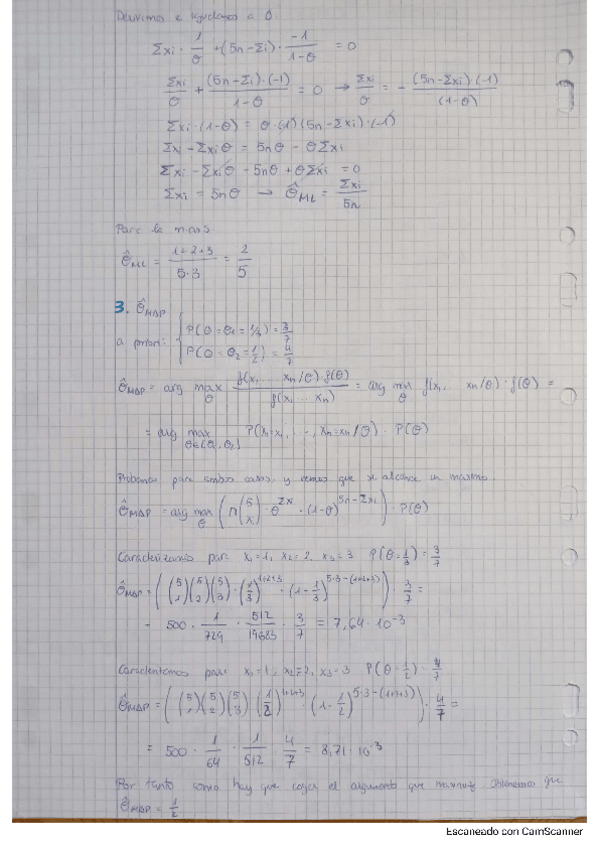 Derivamos e igualamos a 0.
Σxi · 1/θ + (5n-Σi) · -1/1-θ = 0
Σxi/θ + (5n-Σi)·(-1)/1-θ = 0 → Σxi/θ = - (5n-Σxi)·(-1)/(1-θ)
Σxi·(1-θ) = θ·(-1)(5n-Σxi)·(-1)
Σxi - Σxiθ = 5nθ - θΣxi
Σxi - Σxiθ - 5nθ + θΣxi = 0
Σxi = 5nθ → θ̂ML = Σxi/5n
Para la m.a.s
θ̂ML = 1+2+3/5·3 = 2/5
3. θ̂MAP
a priori: { P(θ=θ1=1/3) = 3/7
P(θ=θ2=1/2) = 4/7
θ̂MAP = arg max θ f(x1 ... xn/θ)·f(θ)/f(x1 ... xn) = arg max θ f(x1, ... xn/θ)·f(θ) =
= arg max θ∈{θ1,θ2} P(X1=x1, ..., Xn=xn/θ) · P(θ)
Probamos para ambos casos, y vemos que se alcance un maximo.
θ̂MAP = arg max θ (Π(5 xi) · θ^Σxi · (1-θ)^5n-Σxi) · P(θ)
Caracterizamos para x1=1, x2=2, x3=3 P(θ=1/3) = 3/7
θ̂MAP = ((5 1)(5 2)(5 3) · (1/3)^1+2+3 · (1-1/3)^5·3-(1+2+3)) · 3/7 =
= 500 · 1/729 · 512/19683 · 3/7 = 7,64·10^-3
Caracterizamos para x1=1, x2=2, x3=3 P(θ=1/2) · 4/7
θ̂MAP = ((5 1)(5 2)(5 3) · (1/2)^1+2+3 · (1-1/2)^5·3-(1+2+3)) · 4/7 =
= 500 · 1/64 · 1/512 · 4/7 = 8,71·10^-3
Por tanto como hay que coger el argumento que maximiza obtenemos que
θ̂MAP = 1/2
Escaneado con CamScanner